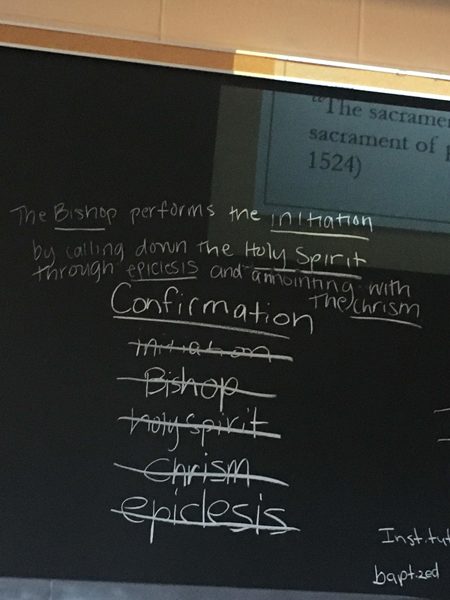 "The sacrame
sacrament of p
1524)
The Bishop performs the initiation
by calling down the Holy Spirit
through epiclesis and annointing with
the chrism
Confirmation
initiation
Bishop
holy spirit
Chrism
epiclesis
Institut
baptized